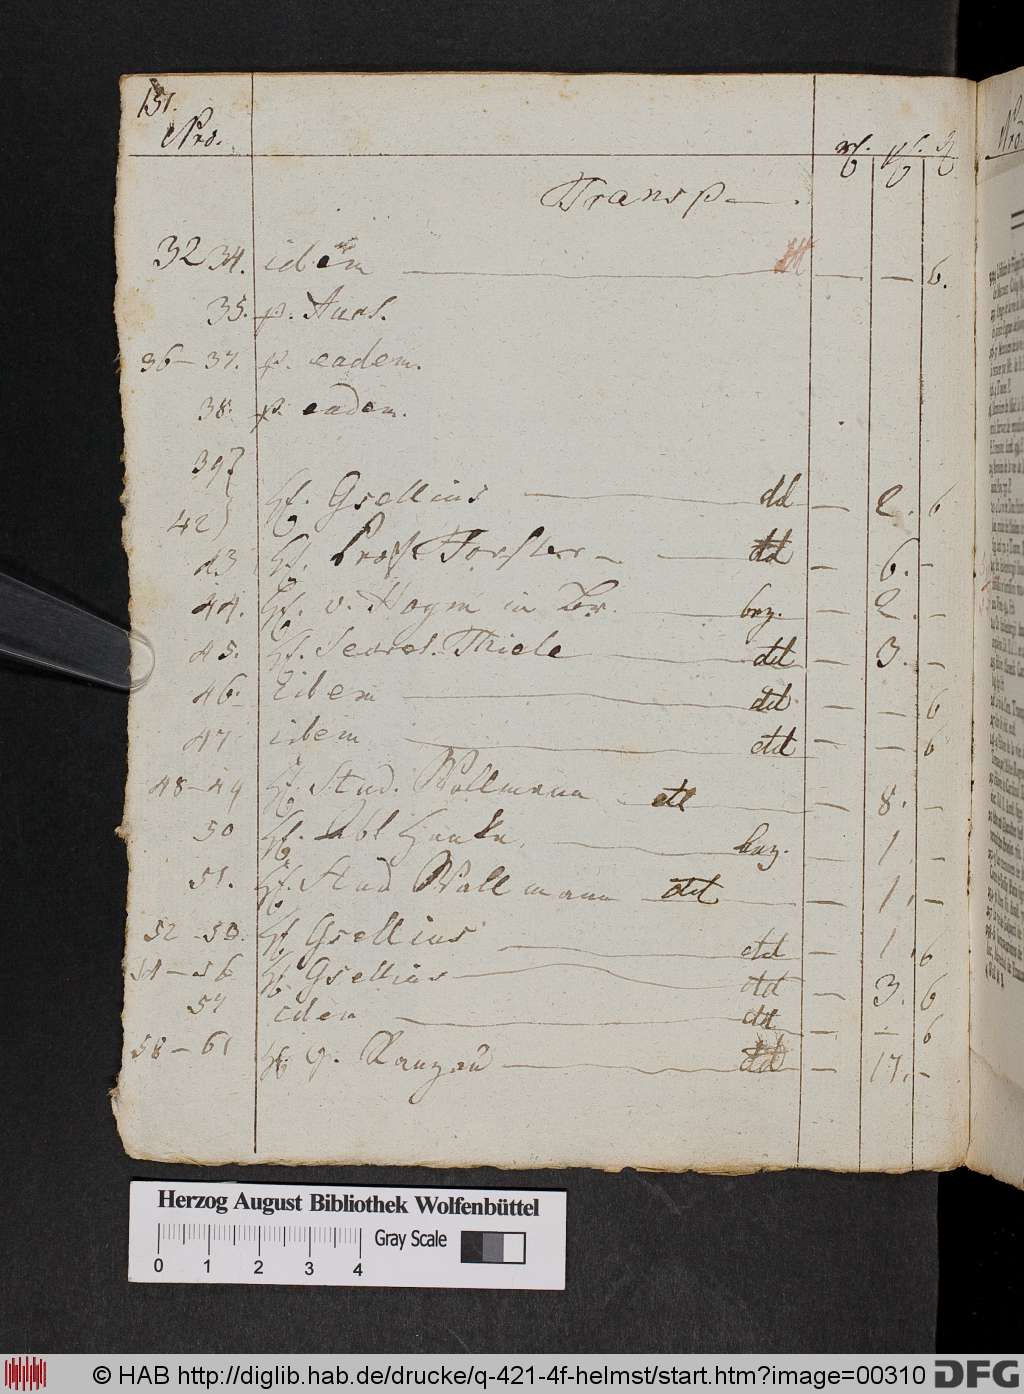 151.
Nro.
Transp
32 34. idem — — 6.
35. p. Aucs.
36 – 37. p. eadem.
38. p. eadem.
39
42 H. Gsellius dd — 2. 6
43 H. Prof. Forster dd — 6. –
44. H. v. Hoym in Br. bez. — 2. –
45. H. Secret. Thiele dd — 3. –
46. Idem dd — — 6
47 idem dd — — 6
48 – 49 H. Stud. Wallmann dd — 8. –
50 H. Abt bez. — 1. –
51. H. Stud Wallmann dd — 1. –
52 – 53. H. Gsellius dd — 1. 6
54 – 56 H. Gsellius dd — 3. 6
57 idem dd — – 6
58 – 61 H. G. Ranzau dd — 17. –
Herzog August Bibliothek Wolfenbüttel
0 1 2 3 4
Gray Scale
© HAB http://diglib.hab.de/drucke/q-421-4f-helmst/start.htm?image=00310
DFG